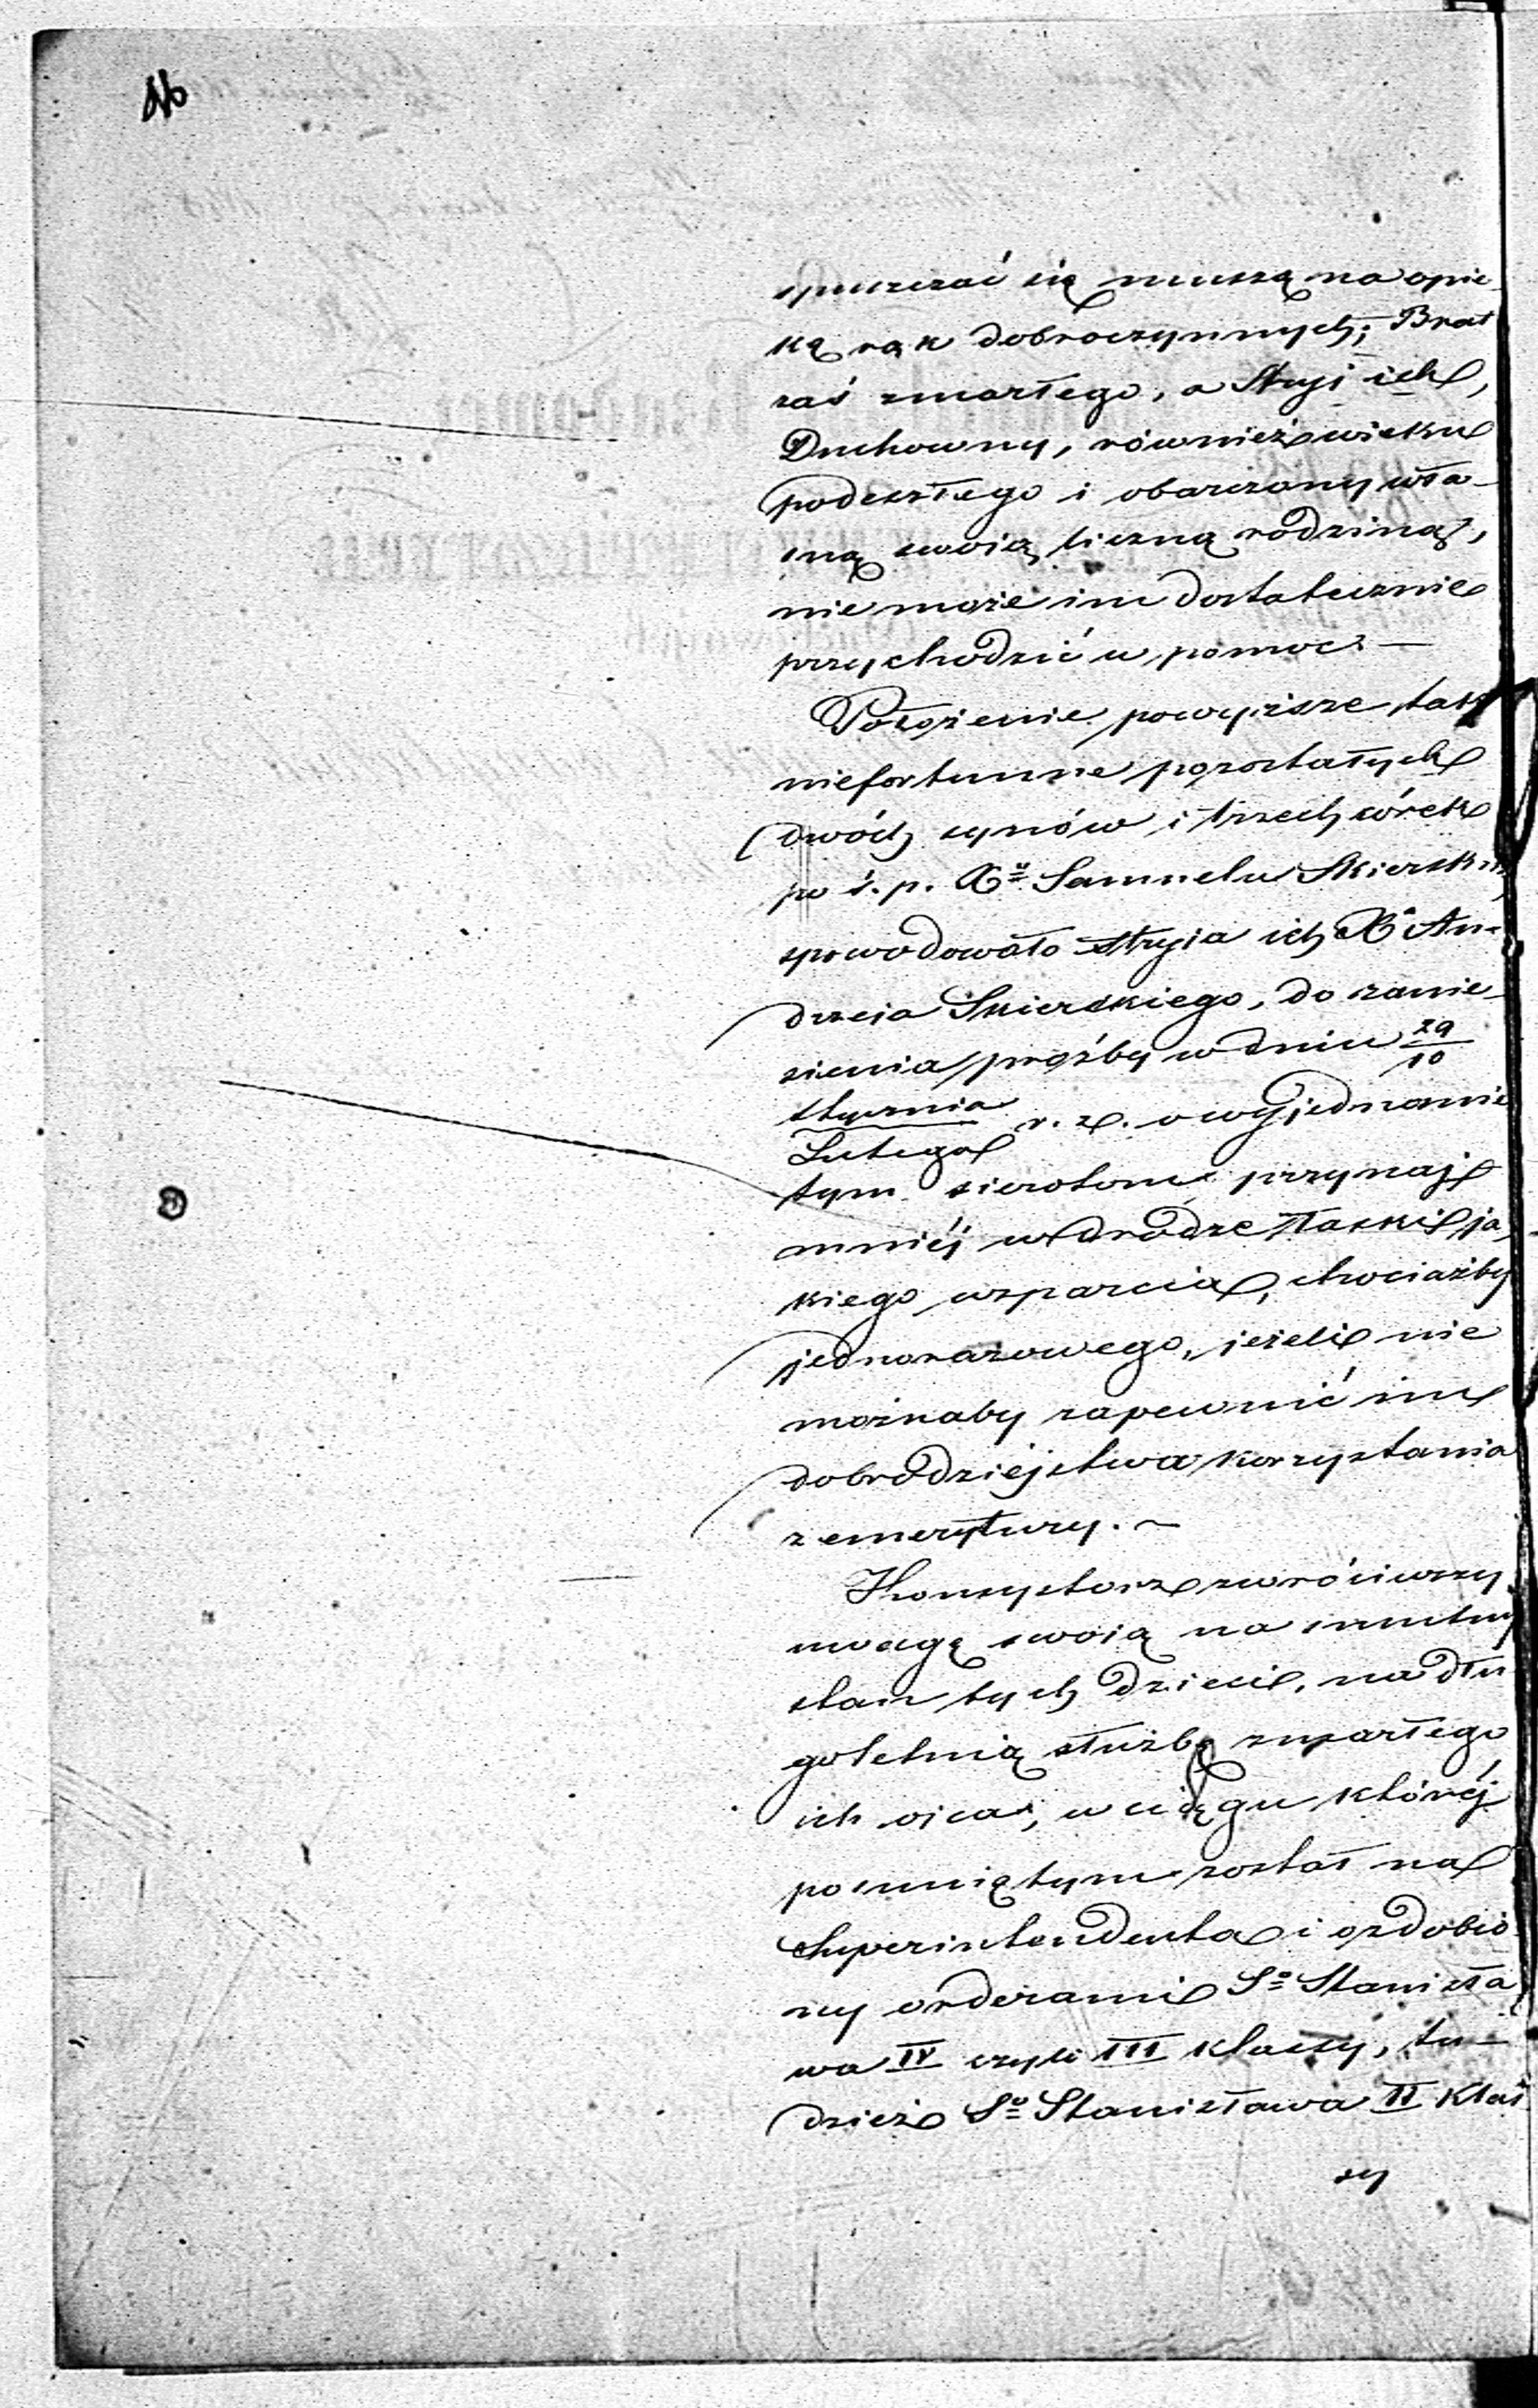 spuszczać się muszą na opie-
kę rąk dobroczynnych; Brat
zaś zmarłego, a Stryj ich,
Duchowny, również wieku
podeszłego i obarczony wła-
sną swoią liczną rodziną,
nie może im dostatecznie
przychodzić w pomoc. —
Położenie powyższe tak
niefortunne pozostałych
dwóch synów i trzech córek
po ś. p. Xu Samuelu Skierskim,
spowodowało stryia ich Xa An-
drzeia Skierskiego, do zanie-
sienia prośby w dniu 29/10
Stycznia/Lutego r. z. o wyjednanie
tym sierotom przynaj-
mniéj w drodze łaski ja-
kiego wsparcia, chociażby
jednorazowego, jeżeli nie
możnaby zapewnić im
dobrodziejstwa korzystania
z emerytury. —
Konsystorz zwróciwszy
uwagę swoią na smutny
stan tych dzieci, na dłu-
goletnią służbę zmarłego
ich ojca, w ciągu któréj
posuniętym został na
Superintendenta i ozdobio-
ny orderami So Stanisła-
wa IV czyli III klassy, tu-
dzież So Stanisława II klas-
sy